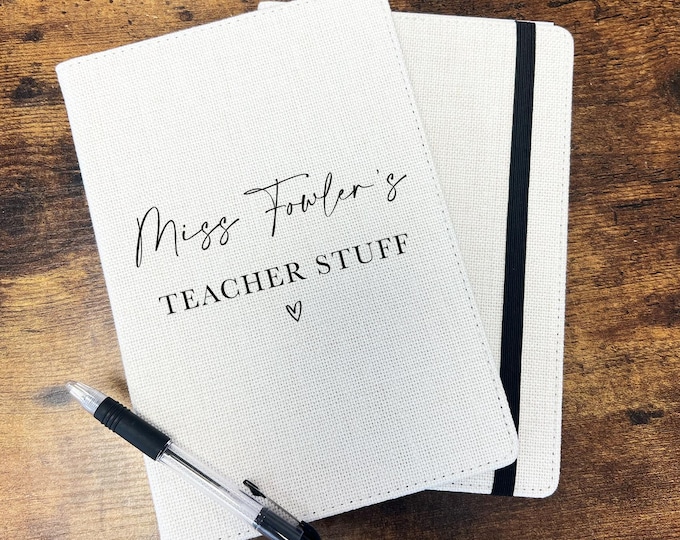 Miss Fowler's
TEACHER STUFF